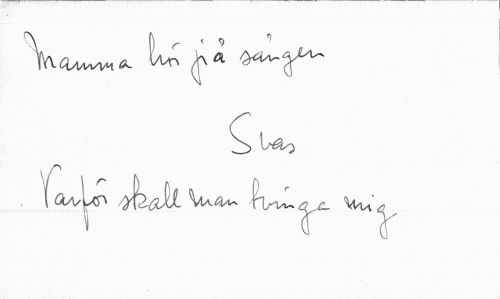 Mamma hör på sången
Svar
Varför skall man tvinga mig